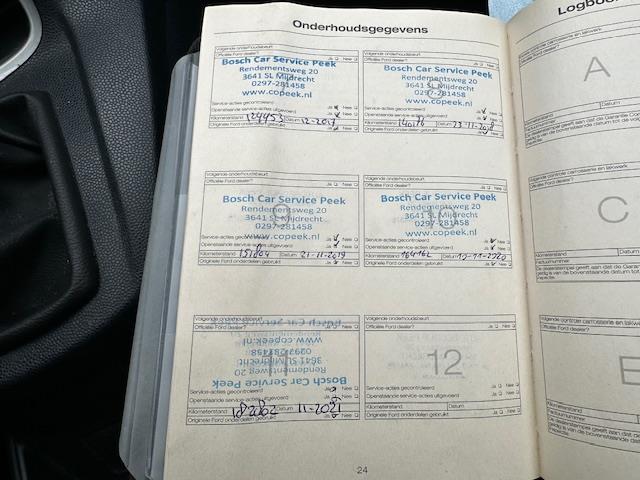 Onderhoudsgegevens
Volgende onderhoudsbeurt
Officiële Ford dealer? Ja Nee
Bosch Car Service Peek
Rendementsweg 20
3641 SL Mijdrecht
0297-281458
www.copeek.nl
Service-acties gecontroleerd Ja Nee
Openstaande service-acties uitgevoerd Ja Nee
Kilometerstand 124453 Datum 12-2017
Originele Ford onderdelen gebruikt Ja Nee
Volgende onderhoudsbeurt
Officiële Ford dealer? Ja Nee
Bosch Car Service Peek
Rendementsweg 20
3641 SL Mijdrecht
0297-281458
www.copeek.nl
Service-acties gecontroleerd Ja Nee
Openstaande service-acties uitgevoerd Ja Nee
Kilometerstand 140176 Datum 23-11-2018
Originele Ford onderdelen gebruikt Ja Nee
Volgende onderhoudsbeurt
Officiële Ford dealer? Ja Nee
Bosch Car Service Peek
Rendementsweg 20
3641 SL Mijdrecht
0297-281458
www.copeek.nl
Service-acties gecontroleerd Ja Nee
Openstaande service-acties uitgevoerd Ja Nee
Kilometerstand 151804 Datum 21-11-2019
Originele Ford onderdelen gebruikt Ja Nee
Volgende onderhoudsbeurt
Officiële Ford dealer? Ja Nee
Bosch Car Service Peek
Rendementsweg 20
3641 SL Mijdrecht
0297-281458
www.copeek.nl
Service-acties gecontroleerd Ja Nee
Openstaande service-acties uitgevoerd Ja Nee
Kilometerstand 164162 Datum 12-11-2020
Originele Ford onderdelen gebruikt Ja Nee
Volgende onderhoudsbeurt
Officiële Ford dealer? Ja Nee
Bosch Car Service Peek
Rendementsweg 20
3641 SL Mijdrecht
0297-281458
www.copeek.nl
Service-acties gecontroleerd Ja Nee
Openstaande service-acties uitgevoerd Ja Nee
Kilometerstand 182062 Datum 11-2021
Originele Ford onderdelen gebruikt Ja Nee
Volgende onderhoudsbeurt
Officiële Ford dealer? Ja Nee
12
Service-acties gecontroleerd Ja Nee
Openstaande service-acties uitgevoerd Ja Nee
Kilometerstand Datum
Originele Ford onderdelen gebruikt Ja Nee
24
A
Datum
Volgende controle carrosserie en lakwerk
Officiële Ford dealer?
C
Factuurnummer
Kilometerstand
Volgende controle carrosserie en lakwerk
Officiële Ford dealer?
E
Factuurnummer
Kilometerstand